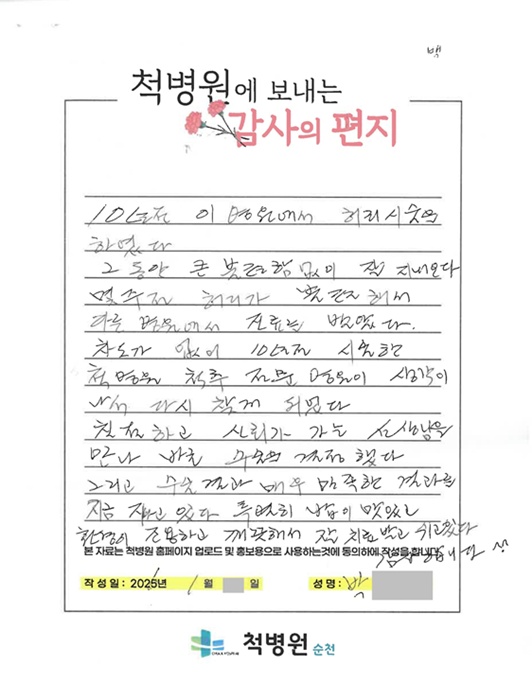 백
척병원에 보내는
감사의 편지
10년전 이 병원에서 허리시술을
하였다
그 동안 큰 불편함 없이 잘 지내오다
몇주전 허리가 불편해서
다른 병원에서 진료를 받았다.
차도가 없어 10년전 시술한
척병원 척추 전문 병원이 생각이
나서 다시 찾게 되었다
친절하고 신뢰가 가는 선생님을
만나 바로 수술을 결정했다
그리고 수술결과 매우 만족한 결과를
지금 있다 특별히 밥이 맛있고
환경이 조용하고 깨끗해서 잘 치료받고 쉬고있다
본 자료는 척병원 홈페이지 업로드 및 홍보용으로 사용하는것에 동의하에 작성을 합니다.
감사합니다
작성일 : 2025년 1월 일 성명 : 박
척병원 순천